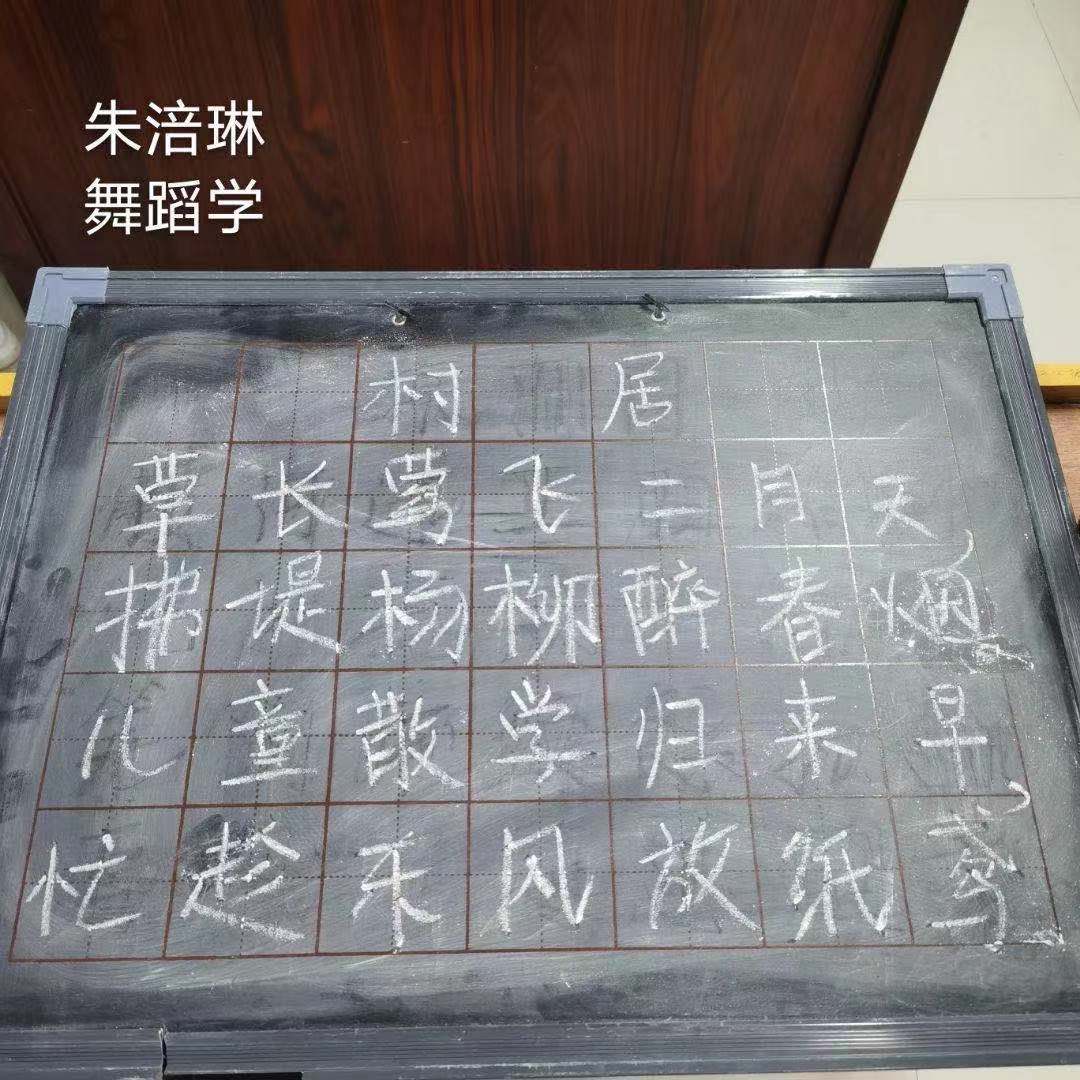 朱涪琳
舞蹈学
村居
草长莺飞二月天，
拂堤杨柳醉春烟。
儿童散学归来早，
忙趁东风放纸鸢。